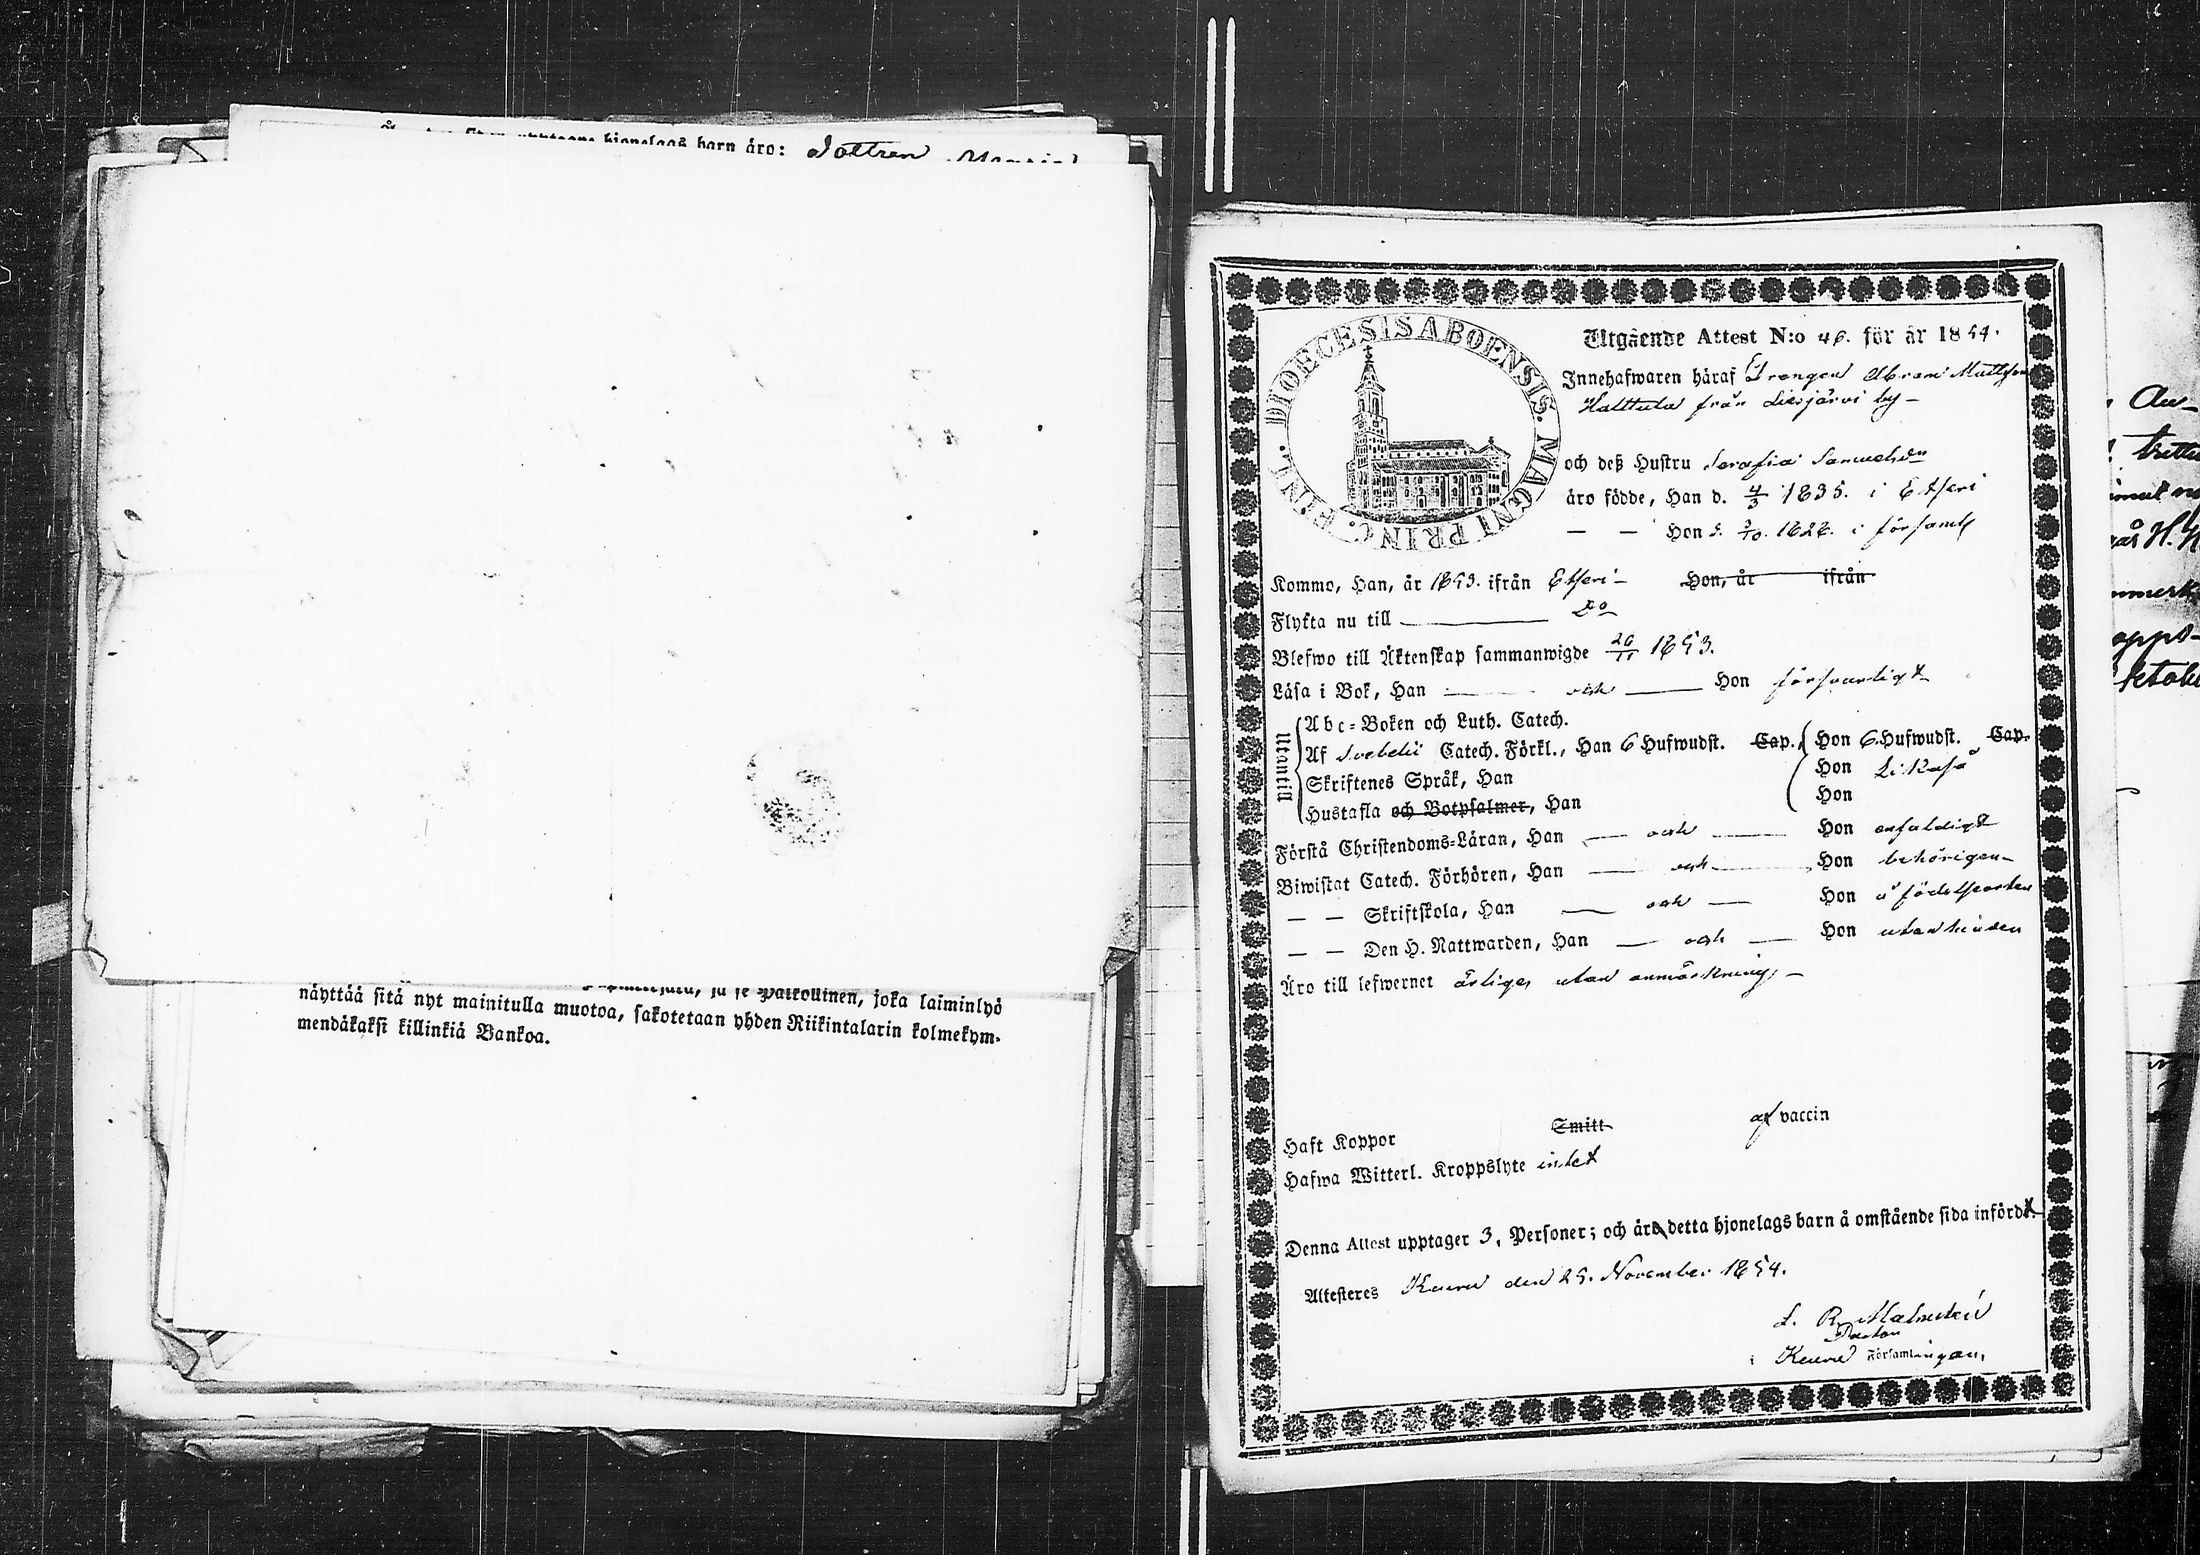 barn äro: Dottren
näyttää sitä nyt mainitulla muotoa, ja se Palkollinen, joka laiminlyö
sakotetaan yhden Riikintalarin kolmekym-
mendäkaksi killinkiä Bankoa.
DIOECESIS ABOENSIS. MAGNI PRINC. FINL.
Utgående Attest N:o 46. för år 1854.
Innehafwaren häraf Drengen Abram Mattsson
Halttula från Liesjärvi by
och deß Hustru Serafia Samuelsdr
äro födde, Han d. 4/3 1835. i Etseri
— — Hon d. 3/10. 1826. i förs:aml
Kommo, Han, år 1853. ifrån Etseri Hon, år ifrån
Flytta nu till — Do
Blefwo till Äktenskap sammanwigde 26/11 1853.
Läsa i Bok, Han — och — Hon försvarligt
Utantill
Abc-Boken och Luth. Catech.
Af Svebelii Catech. Förkl., Han 6 Hufwudst. Cap. Hon 6. Hufwudst. Cap.
Skriftenes Språk, Han Hon Likaså
Hustafla och Botpsalmer, Han Hon
Förstå Christendoms-Läran, Han — och — Hon enfaldigt
Biwistat Catech. Förhören, Han — och — Hon behörigen
— — Skriftskola, Han — och — Hon å födelseorten
— — Den H. Nattwarden, Han — och — Hon utan hinder
Äro till lefwernet ärliga utan anmärkning.
Haft Koppor Smitt af vaccin
Hafwa Witterl. Kroppslyte intet
Denna Attest upptager 3. Personer; och äro detta hjonelags barn å omstående sida infördt.
Attesteres Keuru den 25. November 1854.
Pastor
i Keuru Församlingen.
Au-